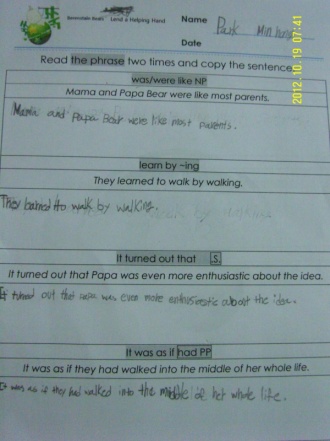 Berenstain Bears Lend a Helping Hand
Name Park Min
Date
Read the phrase two times and copy the sentence.
was/were like NP
Mama and Papa Bear were like most parents.
Mama and Papa Bear were like most parents.
learn by ~ing
They learned to walk by walking.
They learned to walk by walking.
It turned out that S.
It turned out that Papa was even more enthusiastic about the idea.
It turned out that papa was even more enthusiastic about the idea.
It was as if had PP
It was as if they had walked into the middle of her whole life.
It was as if they had walked into the middle of her whole life.
2012.10.19 07:41